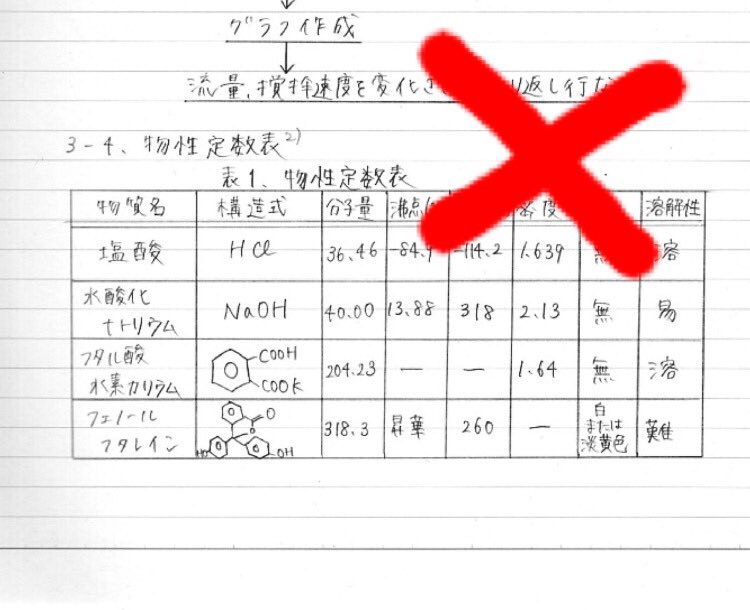 グラフ作成
流量、撹拌速度を変化さ り返し行な
3-4、物性定数表2)
表1、物性定数表
物質名 構造式 分子量 沸点 密度 溶解性
塩酸 HCl 36.46 -84.9 -114.2 1.639 溶
水酸化
ナトリウム NaOH 40.00 13.88 318 2.13 無 易
フタル酸
水素カリウム COOH COOK 204.23 — — 1.64 無 溶
フェノール
フタレイン O O HO OH 318.3 昇華 260 — 白または淡黄色 難